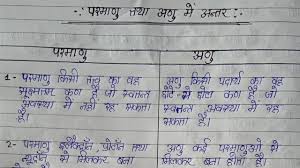 ∴ परमाणु तथा अणु में अन्तर :-
परमाणु
अणु
1- परमाणु किसी तत्व का वह
सूक्ष्मतम कण है जो स्वतन्त्र
अवस्था में नहीं रह सकता
है।
अणु किसी पदार्थ का वह
छोटे से छोटा कण है जो
स्वतन्त्र अवस्था में रह
सकता है।
2- परमाणु इलेक्ट्रॉन, प्रोटॉन तथा
न्यूट्रॉन से मिलकर बना
अणु कई परमाणुओं से
मिलकर बना होता है।